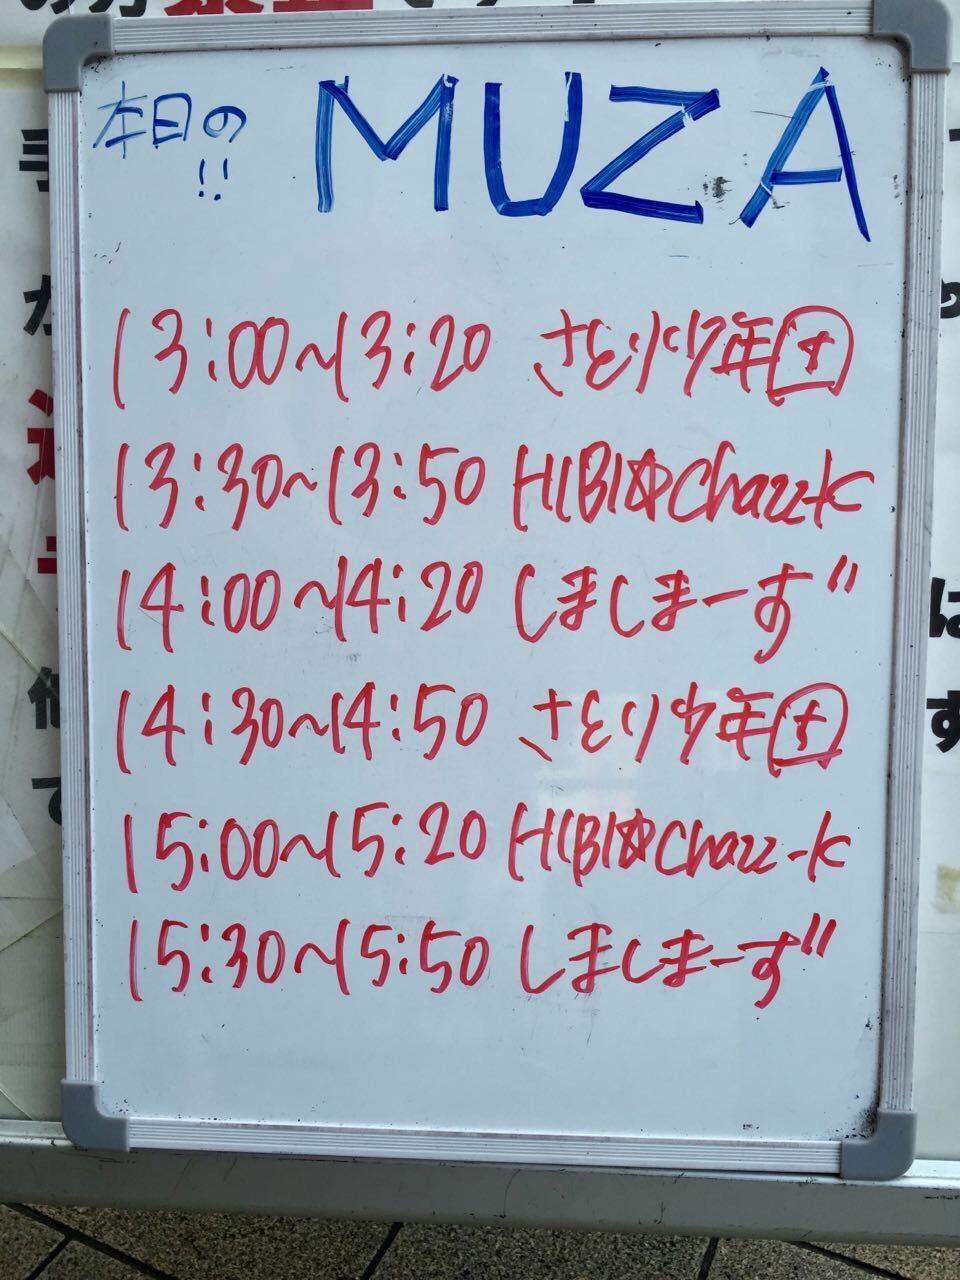 本日の!! MUZA
13:00~13:20 さとり少年団
13:30~13:50 HIBI☆Chazz-K
14:00~14:20 しましまーず
14:30~14:50 さとり少年団
15:00~15:20 HIBI☆Chazz-K
15:30~15:50 しましまーず